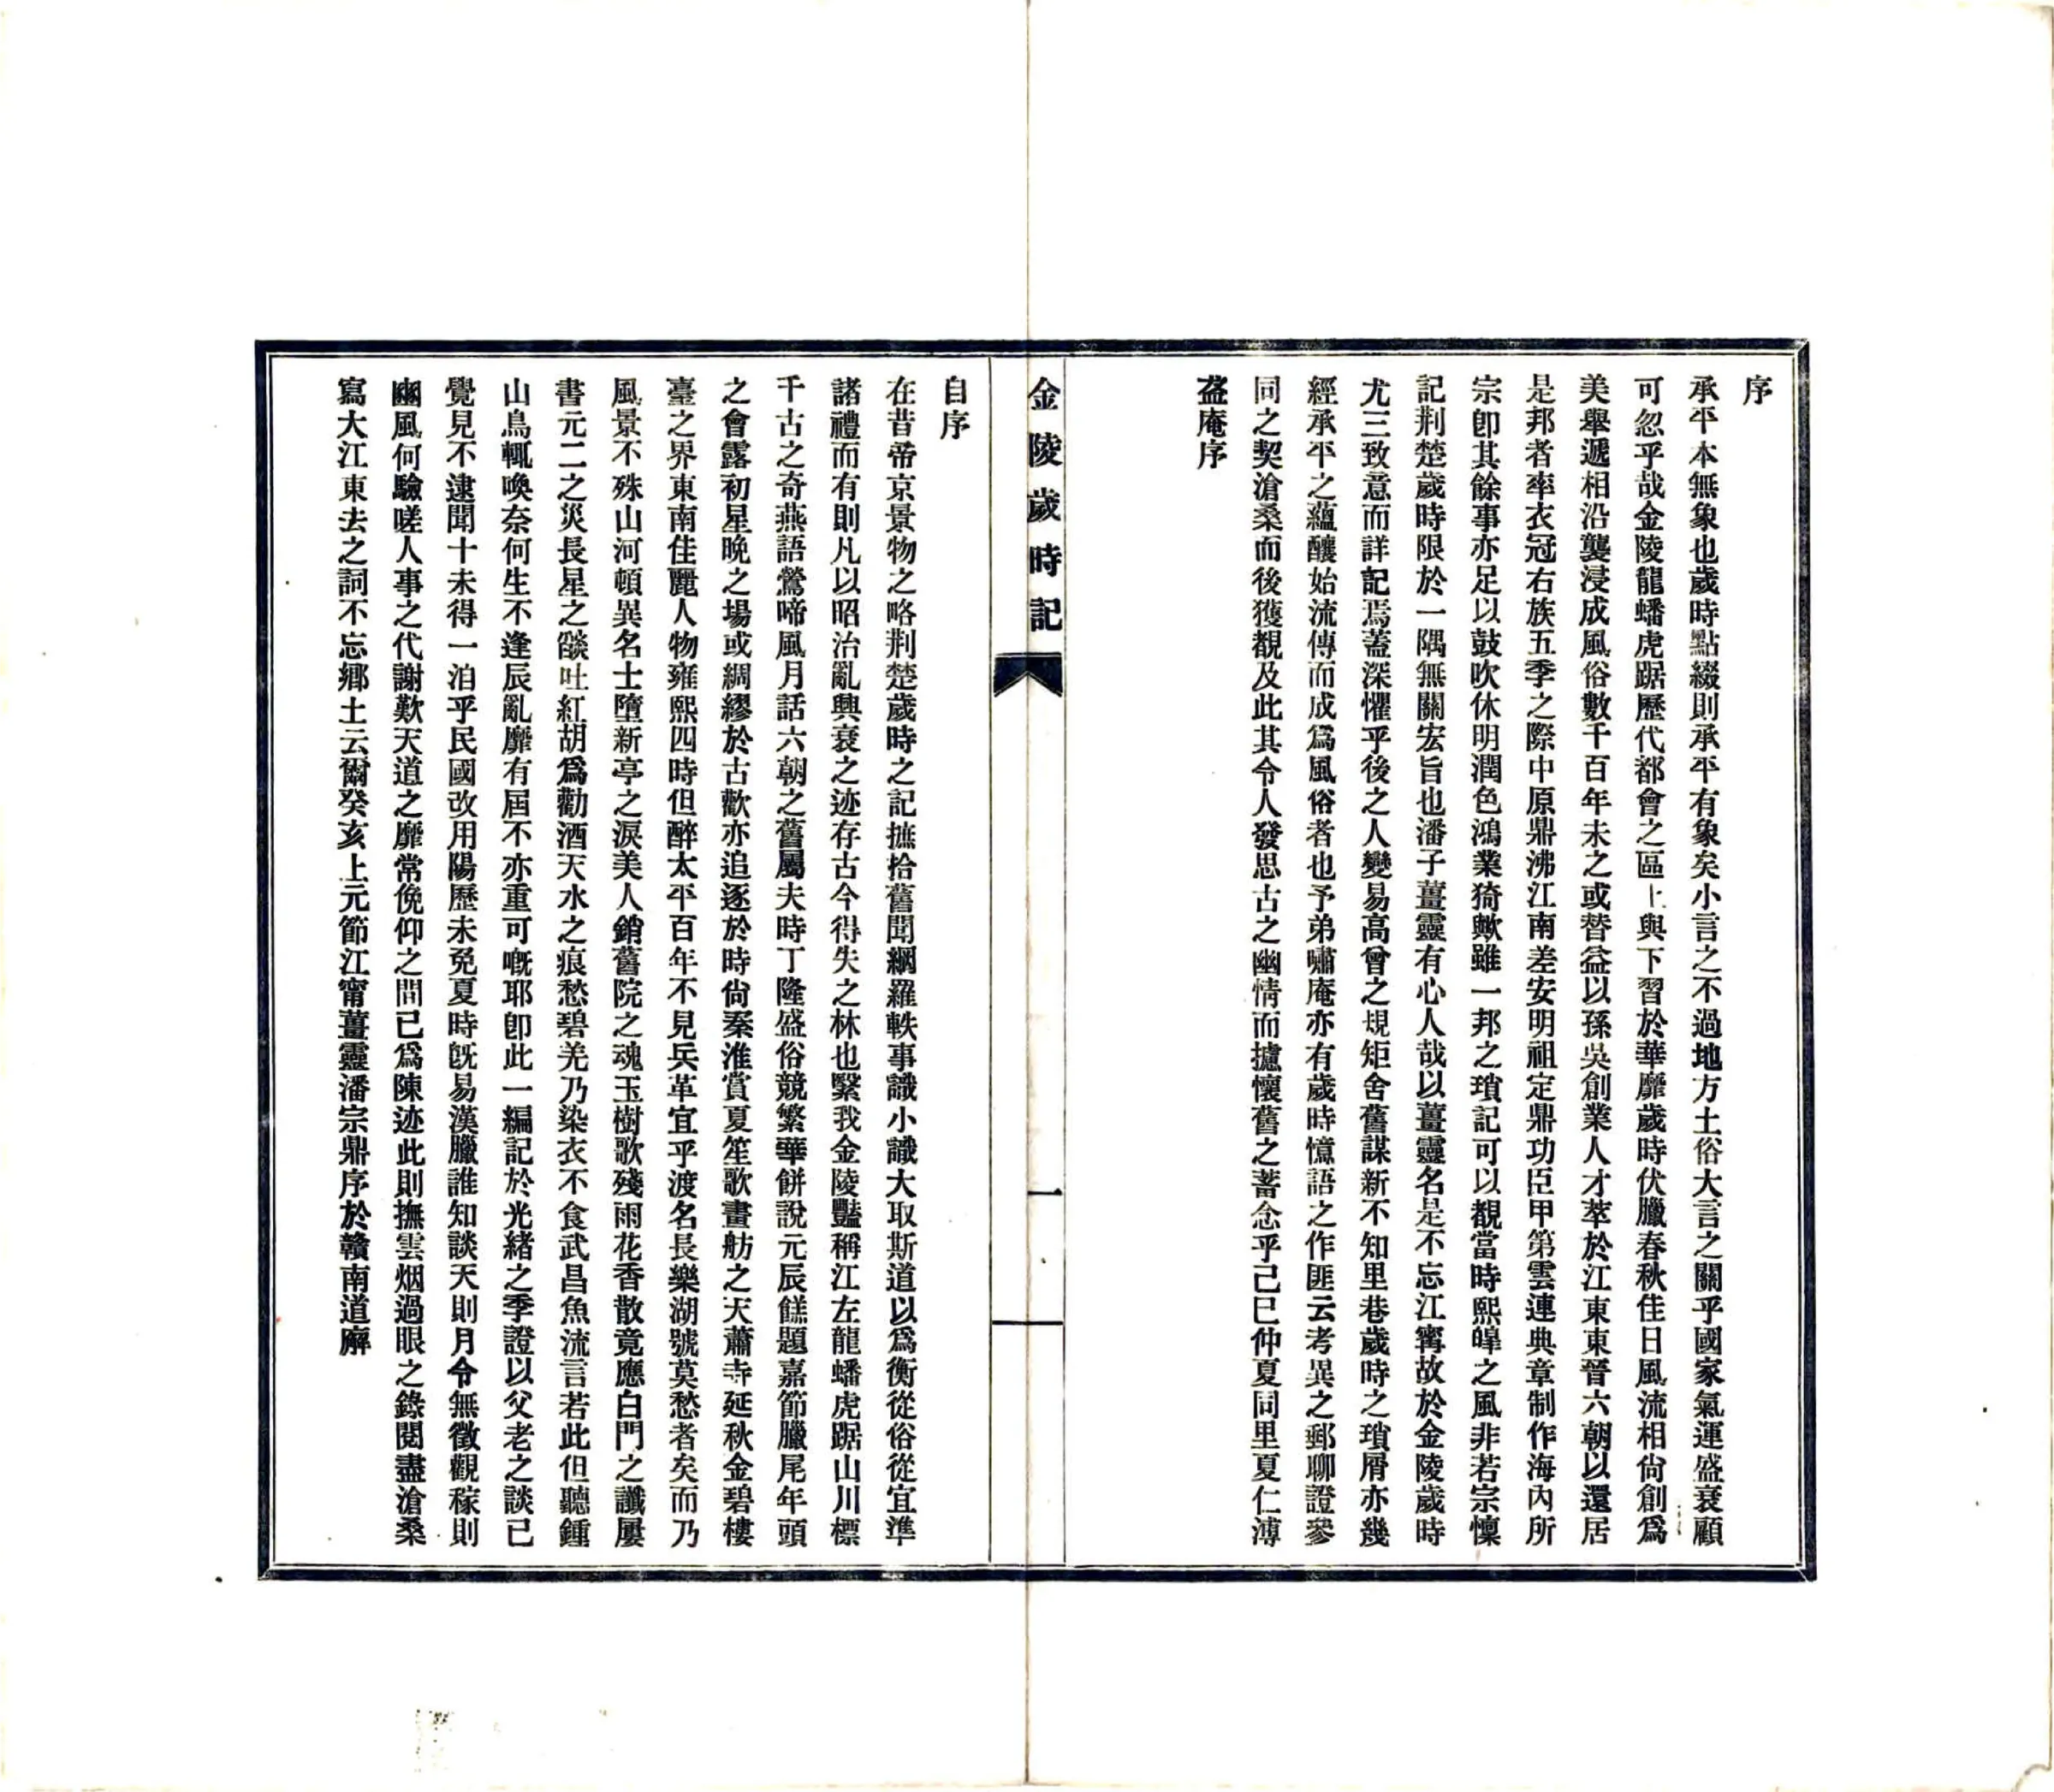 序
承平本無象也歲時點綴則承平有象矣小言之不過地方土俗大言之關乎國家氣運盛衰顧
可忽乎哉金陵龍蟠虎踞歷代都會之區上與下習於華靡歲時伏臘春秋佳日風流相尙創爲
美舉遞相沿襲浸成風俗數千百年未之或替益以孫吳創業人才萃於江東東晉六朝以還居
是邦者率衣冠右族五季之際中原鼎沸江南差安明祖定鼎功臣甲第雲連典章制作海內所
宗卽其餘事亦足以鼓吹休明潤色鴻業猗歟雖一邦之瑣記可以覩當時熙皥之風非若宗懍
記荆楚歲時限於一隅無關宏旨也潘子薑靈有心人哉以薑靈名是不忘江寗故於金陵歲時
尤三致意而詳記焉蓋深懼乎後之人變易高曾之規矩舍舊謀新不知里巷歲時之瑣屑亦幾
經承平之蘊釀始流傳而成爲風俗者也予弟嘯庵亦有歲時憶語之作匪云考異之郵聊證參
同之契滄桑而後獲覩及此其令人發思古之幽情而攄懷舊之蓄念乎己巳仲夏同里夏仁溥
盋庵序
金陵歲時記
一
自序
在昔帝京景物之略荆楚歲時之記摭拾舊聞網羅軼事識小識大取斯道以爲衡從俗從宜準
諸禮而有則凡以昭治亂興衰之迹存古今得失之林也繄我金陵豔稱江左龍蟠虎踞山川標
千古之奇燕語鶯啼風月話六朝之舊屬夫時丁隆盛俗競繁華餅說元辰餻題嘉節臘尾年頭
之會露初星晚之場或綢繆於古歡亦追逐於時尙秦淮賞夏笙歌畫舫之天蕭寺延秋金碧樓
臺之界東南佳麗人物雍熙四時但醉太平百年不見兵革宜乎渡名長樂湖號莫愁者矣而乃
風景不殊山河頓異名士墮新亭之淚美人銷舊院之魂玉樹歌殘雨花香散竟應白門之讖屢
書元二之災長星之燄吐紅胡爲勸酒天水之痕愁碧羌乃染衣不食武昌魚流言若此但聽鍾
山鳥輒喚奈何生不逢辰亂靡有屆不亦重可嘅耶卽此一編記於光緒之季證以父老之談已
覺見不逮聞十未得一洎乎民國改用陽歷未免夏時旣易漢臘誰知談天則月令無徵觀稼則
豳風何驗嗟人事之代謝歎天道之靡常俛仰之間已爲陳迹此則撫雲烟過眼之錄閱盡滄桑
寫大江東去之詞不忘鄉土云爾癸亥上元節江甯薑靈潘宗鼎序於贛南道廨